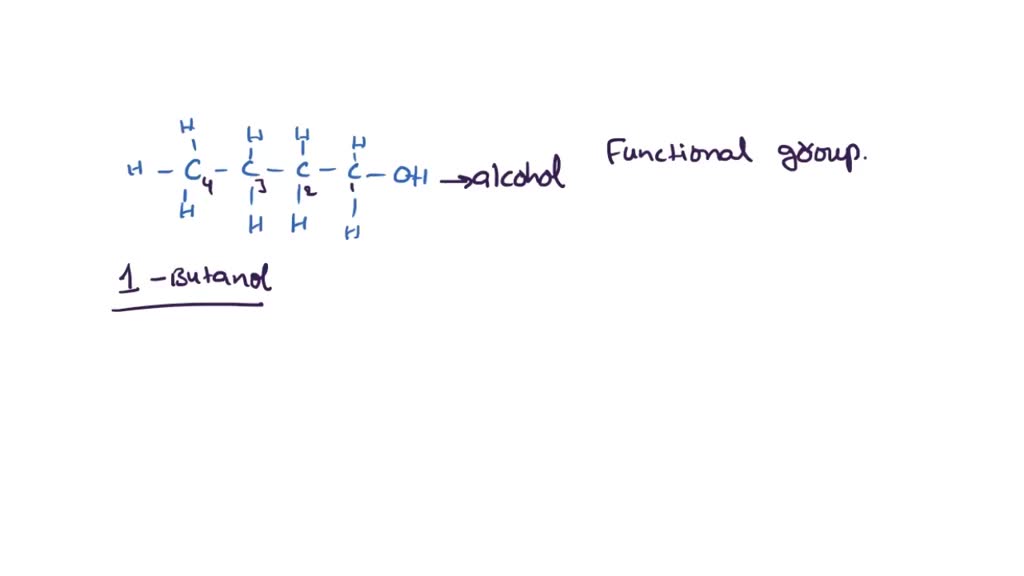 H H H H
H - C4 - C3 - C2 - C1 - OH → alcohol Functional group.
H H H H
1 - Butanol